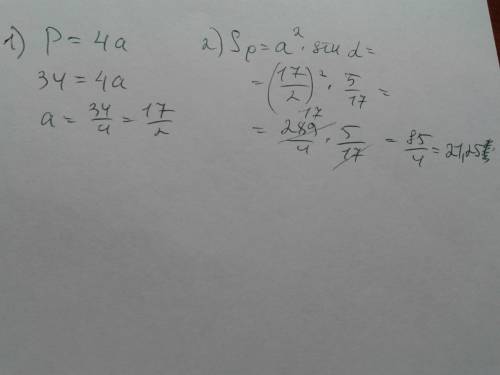 1) P = 4a
34 = 4a
a = 34/4 = 17/2
2) Sp = a² · sin α =
= (17/2)² · 5/17 =
17
= 289/4 · 5/17 = 85/4 = 21,25